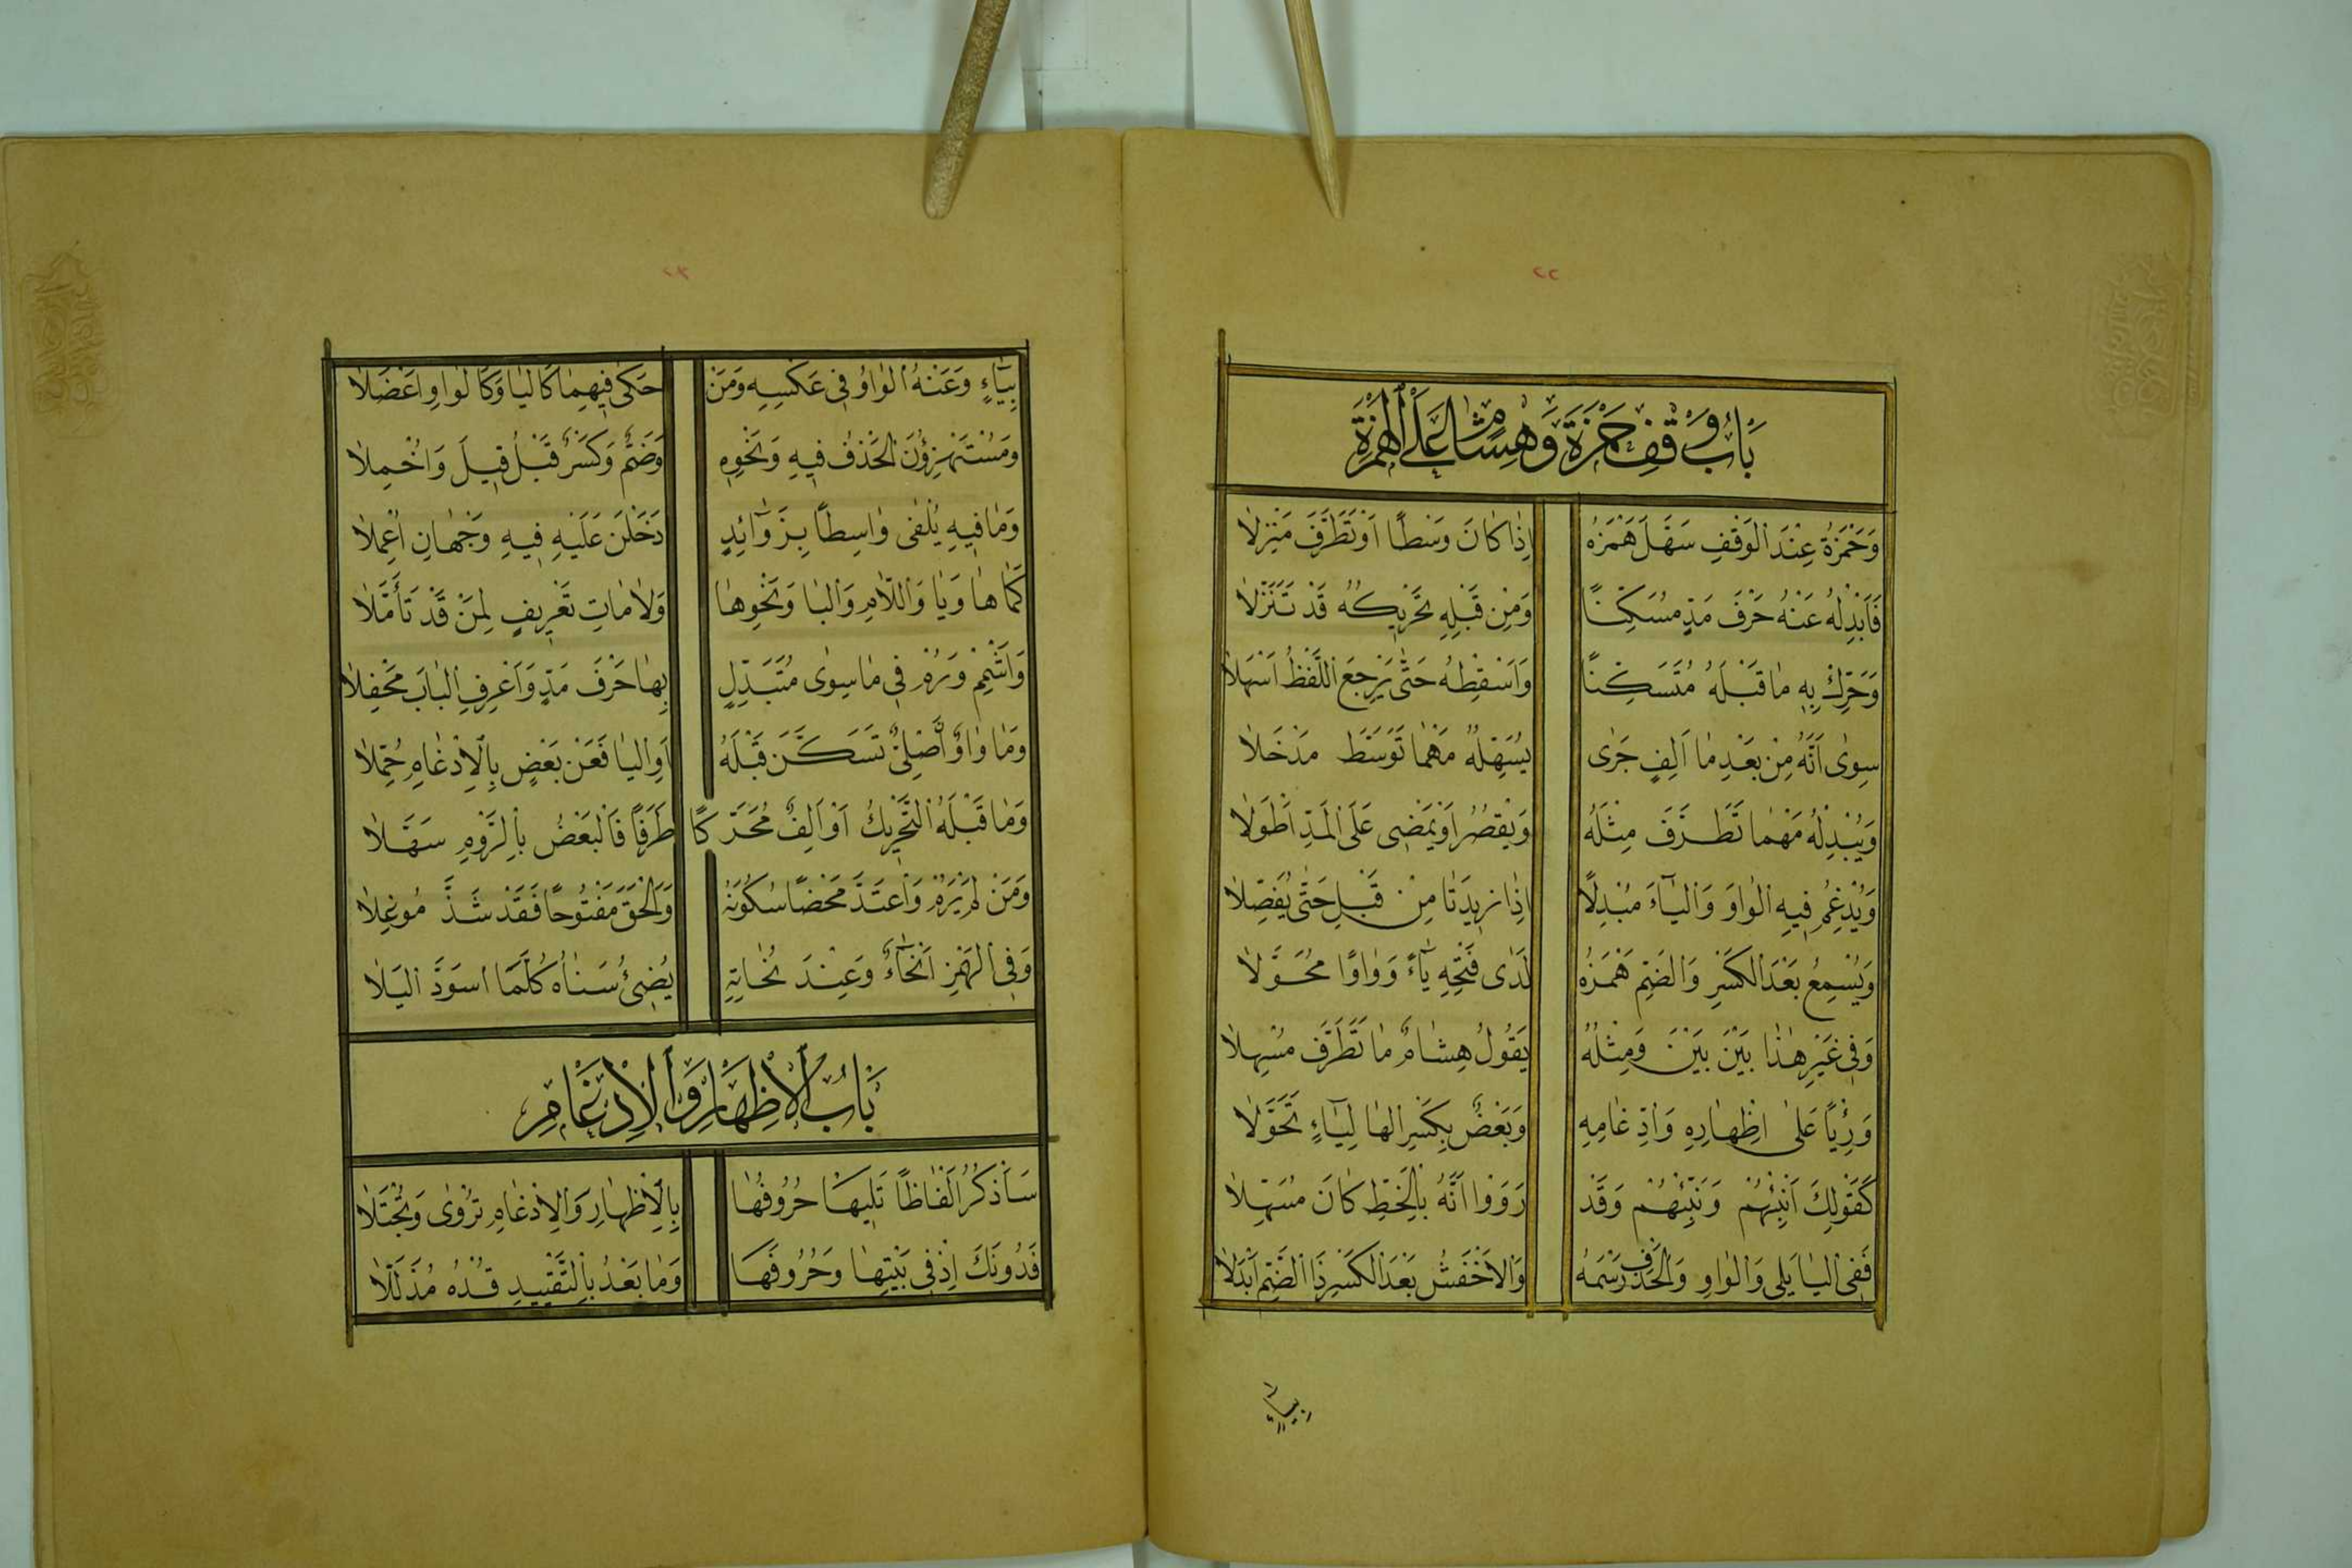 ٢٢
بَابُ وَقْفِ حَمْزَةَ وَهِشَامٍ عَلَى الْهَمْزَةِ
وَحَمْزَةُ عِنْدَ الْوَقْفِ سَهَّلَ هَمْزَهُ اِذَا كَانَ وَسْطًا اَوْ تَطَرَّفَ مَنْزِلَا
فَاَبْدِلْهُ عَنْهُ حَرْفَ مَدٍّ مُسَكِّنًا وَمِنْ قَبْلِهِ تَحْرِيكُهُ قَدْ تَنَزَّلَا
وَحَرِّكْ بِهِ مَا قَبْلَهُ مُتَسَكِّنًا وَاَسْقِطْهُ حَتَّى يَرْجِعَ اللَّفْظُ اَسْهَلَا
سِوٰى اَنَّهُ مِنْ بَعْدِ مَا اَلِفٍ جَرٰى يُسَهِّلُهُ مَهْمَا تَوَسَّطَ مَدْخَلَا
وَيُبْدِلُهُ مَهْمَا تَطَرَّفَ مِثْلَهُ وَيَقْصُرُ اَوْ يَمْضِى عَلَى الْمَدِّ اَطْوَلَا
وَيُدْغِمُ فِيهِ الْوَاوَ وَالْيَآءَ مُبْدِلًا اِذَا زِيدَتَا مِنْ قَبْلِ حَتّٰى يُفَصِّلَا
وَيُسْمِعُ بَعْدَ الْكَسْرِ وَالضَّمِّ هَمْزَهُ لَدٰى فَتْحِهِ يَآءً وَوَاوًا مُحَوَّلَا
وَفِى غَيْرِ هٰذَا بَيْنَ بَيْنَ وَمِثْلُهُ يَقُولُ هِشَامٌ مَا تَطَرَّفَ مُسْهِلَا
وَرِئْيًا عَلٰى اِظْهَارِهِ وَادِّغَامِهِ وَبَعْضٌ بِكَسْرِ الْهَا لِيَآءٍ تَحَوَّلَا
كَقَوْلِكَ اَنْبِئْهُمْ وَنَبِّئْهُمْ وَقَدْ رَوَوْا اَنَّهُ بِالْخَطِّ كَانَ مُسَهِّلَا
فَفِى الْيَا يَلِى وَالْوَاوِ وَالْحَذْفِ رَسْمَهُ وَالْاَخْفَشُ بَعْدَ الْكَسْرِ ذَا الضَّمِّ اَبْدَلَا
بِيَاءٍ
٢٣
بِيَآءٍ وَعَنْهُ الْوَاوُ فِى عَكْسِهِ وَمَنْ حَكٰى فِيهِمَا كَالْيَا وَكَالْوَاوِ اَعْضَلَا
وَمُسْتَهْزِؤُنَ الْحَذْفُ فِيهِ وَنَحْوِهِ وَضَمٌّ وَكَسْرٌ قَبْلُ قِيلَ وَاُخْمِلَا
وَمَا فِيهِ يُلْفٰى وَاسِطًا بِزَوَآئِدٍ دَخَلْنَ عَلَيْهِ فِيهِ وَجْهَانِ اُعْمِلَا
كَمَا هَا وَيَا وَاللَّامِ وَالْبَا وَنَحْوِهَا وَلَامَاتِ تَعْرِيفٍ لِمَنْ قَدْ تَأَمَّلَا
وَاَشْمِمْ وَرُمْ فِى مَا سِوٰى مُتَبَدِّلٍ بِهَا حَرْفَ مَدٍّ وَاعْرِفِ الْبَابَ مَحْفِلَا
وَمَا وَاوٌ اَصْلِىٌّ تَسَكَّنَ قَبْلَهُ اَوِ الْيَا فَعَنْ بَعْضٍ بِالْاِدْغَامِ حُمِّلَا
وَمَا قَبْلَهُ التَّحْرِيكُ اَوْ اَلِفٌ مُحَرَّكًا طَرَفًا فَالْبَعْضُ بِالرَّوْمِ سَهَّلَا
وَمَنْ لَمْ يَرُمْ وَاعْتَدَّ مَحْضًا سُكُونَهُ وَاَلْحَقَ مَفْتُوحًا فَقَدْ شَذَّ مُوغِلَا
وَفِى الْهَمْزِ اَنْحَآءٌ وَعِنْدَ نُحَاتِهِ يُضِئُ سَنَاهُ كُلَّمَا اسْوَدَّ اَلْيَلَا
بَابُ الْاِظْهَارِ وَالْاِدْغَامِ
سَأَذْكُرُ اَلْفَاظًا تَلِيهَا حُرُوفُهَا بِالْاِظْهَارِ وَالْاِدْغَامِ تُرْوٰى وَتُجْتَلَا
فَدُونَكَ اِذْ فِى بَيْتِهَا وَحُرُوفُهَا وَمَا بَعْدُ بِالتَّقْيِيدِ قُدْهُ مُذَلَّلَا